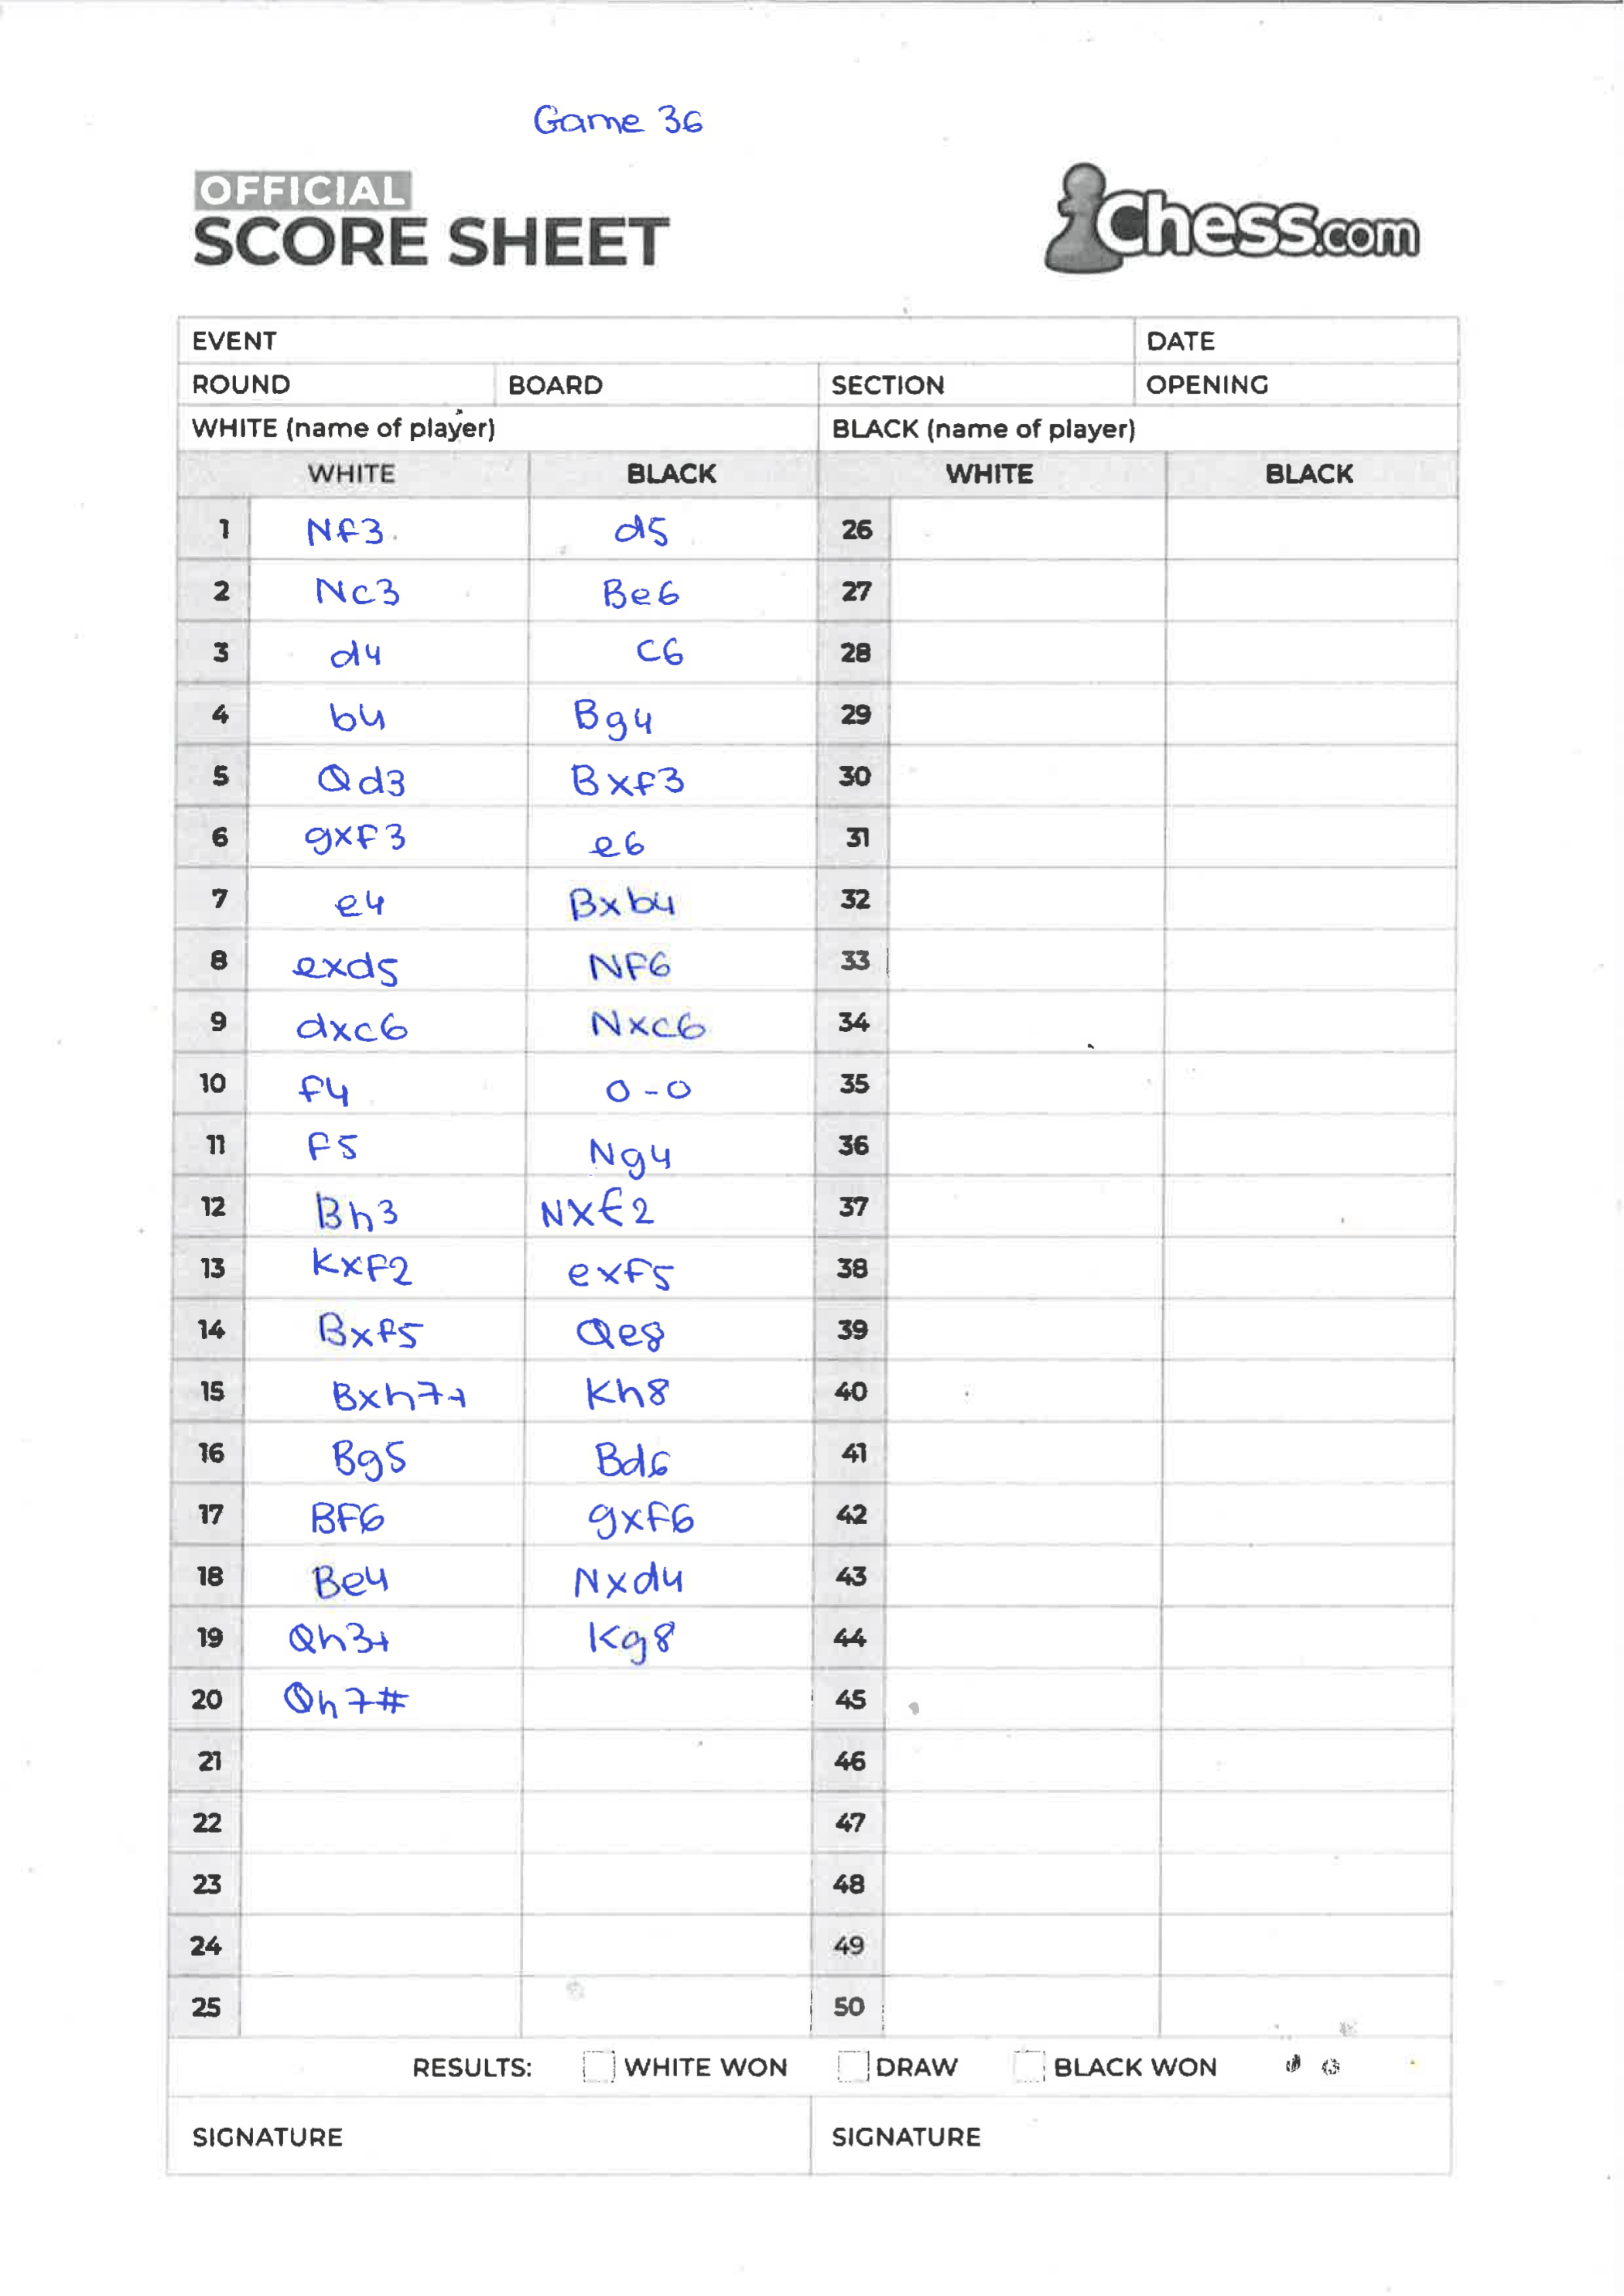 Game 36
OFFICIAL
SCORE SHEET
Chess.com
EVENT DATE
ROUND BOARD SECTION OPENING
WHITE (name of player) BLACK (name of player)
WHITE BLACK WHITE BLACK
1 Nf3 d5 26
2 Nc3 Be6 27
3 d4 c6 28
4 b4 Bg4 29
5 Qd3 Bxf3 30
6 gxf3 e6 31
7 e4 Bxb4 32
8 exd5 NF6 33
9 dxc6 Nxc6 34
10 f4 0-0 35
11 F5 Ng4 36
12 Bh3 Nxf2 37
13 KxF2 exf5 38
14 Bxf5 Qe8 39
15 Bxh7+ Kh8 40
16 Bg5 Bd6 41
17 BF6 gxF6 42
18 Be4 Nxd4 43
19 Qh3+ Kg8 44
20 Qh7# 45
21 46
22 47
23 48
24 49
25 50
RESULTS: WHITE WON DRAW BLACK WON
SIGNATURE SIGNATURE